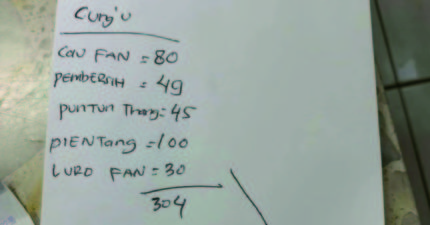 Cung'u
CAU FAN = 80
PEMBERSIH = 49
PUNTUN Thong = 45
PIENTANG = 100
LURO FAN = 30
304